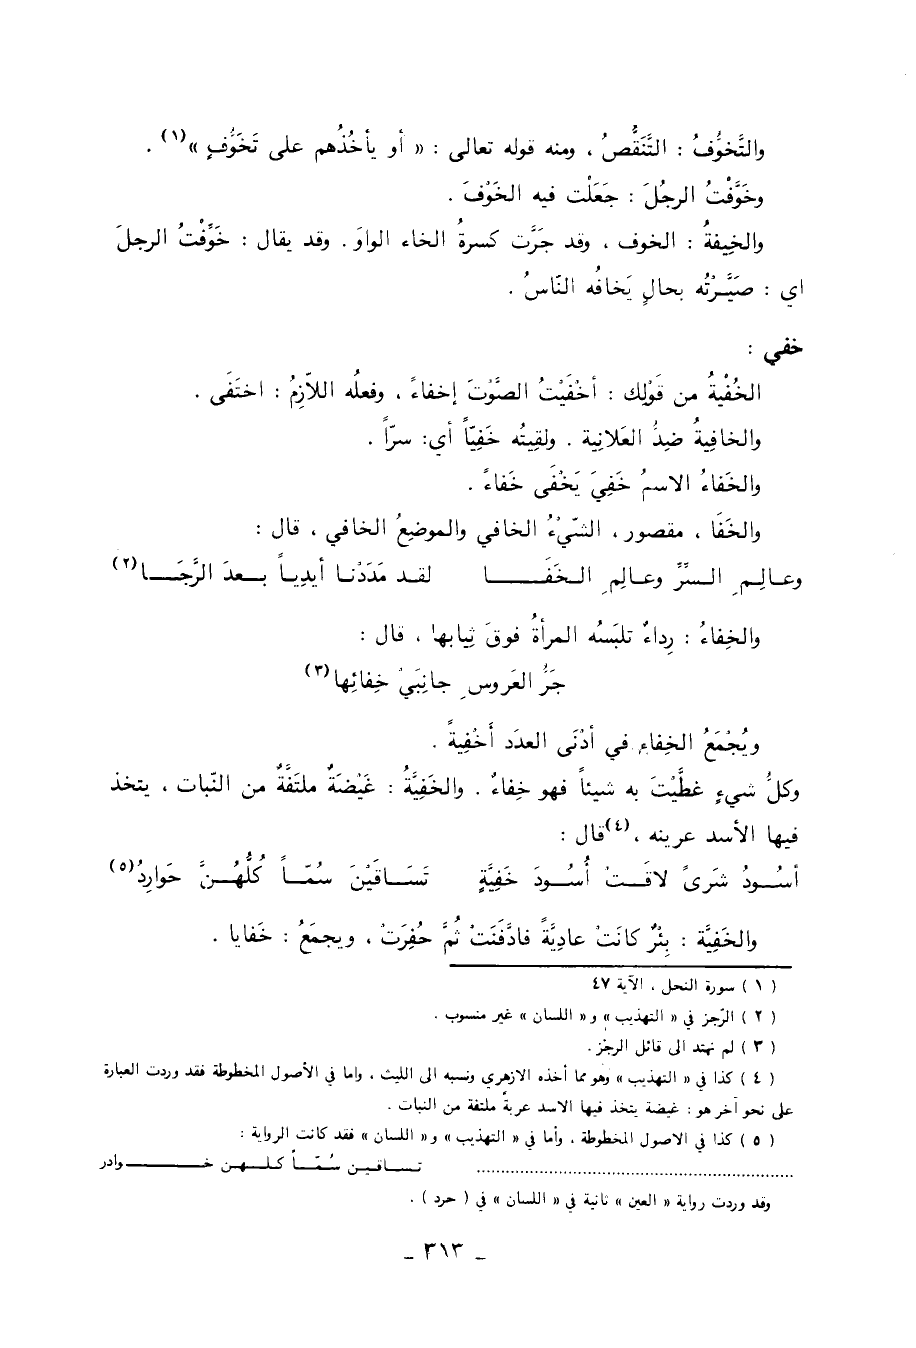 والتَّخوُّفُ : التَّنَقُّصُ ، ومنه قوله تعالى : « أو يأخُذُهم على تَخَوُّفٍ »(١) .
وخَوَّفْتُ الرجُلَ : جَعَلْت فيه الخَوْفَ .
والخِيفةُ : الخوف ، وقد جَرَّت كسرةُ الخاء الواوَ . وقد يقال : خَوَّفْتُ الرجلَ
اي : صَيَّرْتُه بحالٍ يَخافُه النّاسُ .
خفي :
الخُفْيةُ من قَوْلِك : أخْفَيْتُ الصَّوْتَ إخفاءً ، وفعلُه اللاّزِمُ : اختَفَى .
والخافِيةُ ضِدُّ العَلانِية . ولقِيتُه خَفِيّاً أي: سرّاً .
والخَفاءُ الاسمُ خَفِيَ يَخْفَى خَفاءً .
والخَفَا ، مقصور ، الشّيْءُ الخافي والموضِعُ الخافي ، قال :
وعالِمِ السِّرِّ وعالِمِ الخَفَا لقد مَدَدْنا أيدِياً بعدَ الرَّجَا(٢)
والخِفاءُ : رِداءٌ تلبَسُه المرأةُ فوقَ ثِيابها ، قال :
جَرُّ العَروسِ جانِبَيْ خِفائِها(٣)
ويُجْمَعُ الخِفاءِ في أدْنَى العدَد أخْفِيةً .
وكلُّ شيءٍ غطَّيْتَ به شيئاً فهو خِفاءٌ . والخَفِيَّةُ : غَيْضَةٌ ملتَفَّةٌ من النّبات ، يتخذ
فيها الأسد عرينه ،(٤)قال :
أسُودُ شَرىً لاقَتْ أُسُودَ خَفِيَّةٍ تَسَاقَيْنَ سُمّاً كُلُّهُنَّ حَوارِدُ(٥)
والخَفِيَّة : بِئْرٌ كانَتْ عادِيَّةً فادَّفَنَتْ ثُمَّ حُفِرَتْ ، ويجمَعُ : خَفايا .
( ١ ) سورة النحل ، الآية ٤٧
( ٢ ) الرّجز في « التهذيب » و « اللسان » غير منسوب .
( ٣ ) لم نهتد الى قائل الرجز .
( ٤ ) كذا في « التهذيب » وهو مما أخذه الازهري ونسبه الى الليث ، واما في الأصول المخطوطة فقد وردت العبارة
على نحو آخر هو : غيضة يتخذ فيها الاسد عربة ملتفة من النبات .
( ٥ ) كذا في الاصول المخطوطة ، وأما في « التهذيب » و« اللسان » فقد كانت الرواية :
................................................ تساقين سُمّاً كلهن خوادر
وقد وردت رواية « العين » ثانية في « اللسان » في ( حرد ) .
ـ ٣١٣ ـ